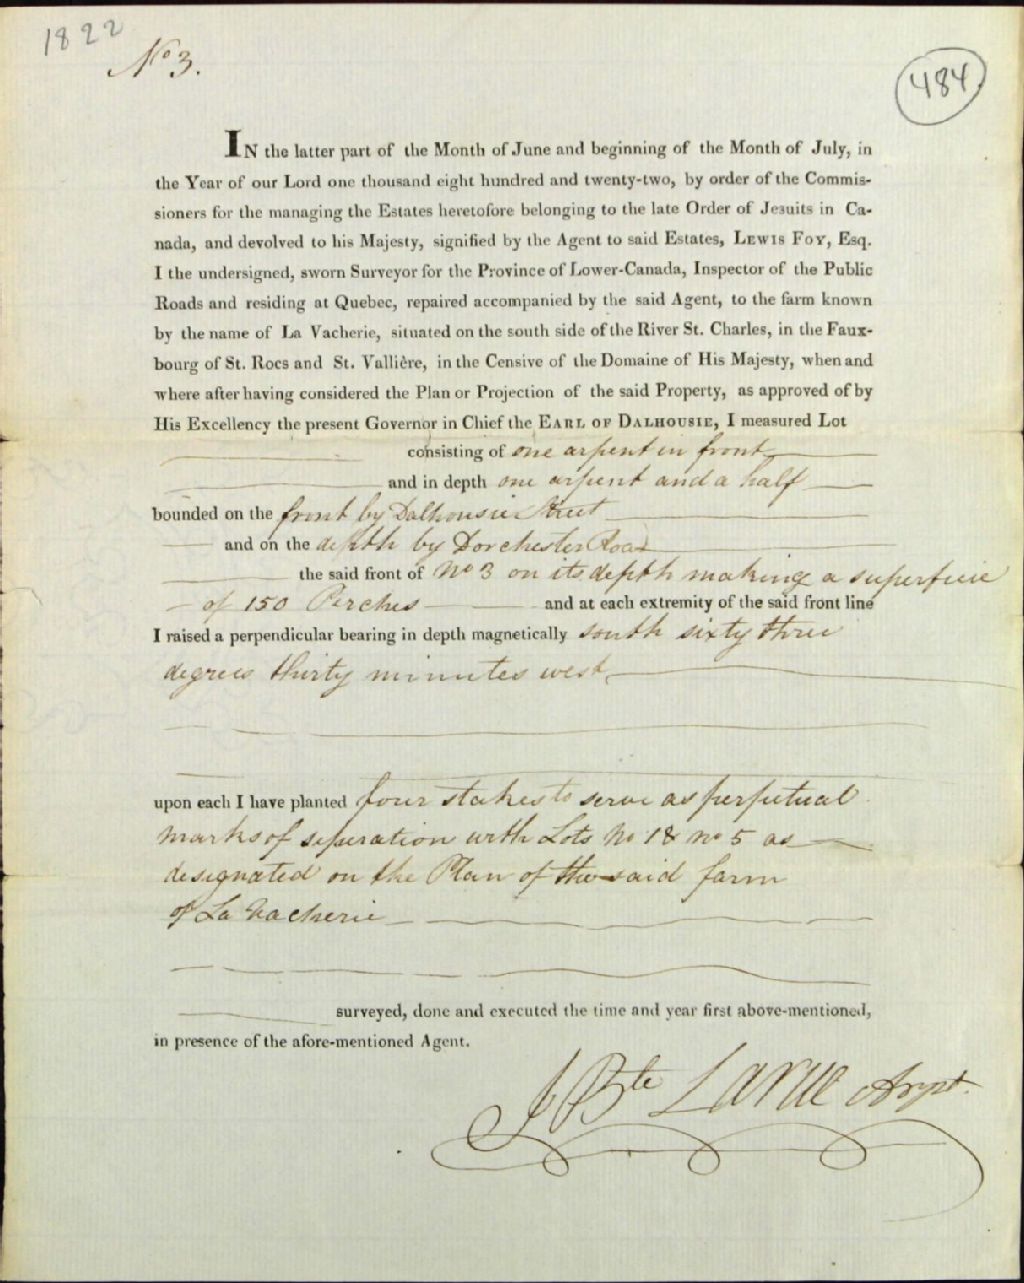 1822
No 3.
484
IN the latter part of the Month of June and beginning of the Month of July, in
the Year of our Lord one thousand eight hundred and twenty-two, by order of the Commis-
sioners for the managing the Estates heretofore belonging to the late Order of Jesuits in Ca-
nada, and devolved to his Majesty, signified by the Agent to said Estates, LEWIS FOY, Esq.
I the undersigned, sworn Surveyor for the Province of Lower-Canada, Inspector of the Public
Roads and residing at Quebec, repaired accompanied by the said Agent, to the farm known
by the name of La Vacherie, situated on the south side of the River St. Charles, in the Faux-
bourg of St. Rocs and St. Vallière, in the Censive of the Domaine of His Majesty, when and
where after having considered the Plan or Projection of the said Property, as approved of by
His Excellency the present Governor in Chief the EARL OF DALHOUSIE, I measured Lot
consisting of one arpent in front
and in depth one arpent and a half
bounded on the front by Dalhousie Street
and on the depth by Dorchester Road
the said front of No 3 on its depth making a superficie
of 150 Perches and at each extremity of the said front line
I raised a perpendicular bearing in depth magnetically south sixty three
degrees thirty minutes west
upon each I have planted four stakes to serve as perpetual
marks of seperation with Lots No 1 & No 5 as
designated on the Plan of the said farm
of La Vacherie
surveyed, done and executed the time and year first above-mentioned,
in presence of the afore-mentioned Agent.
J Bte Larue Arpt.